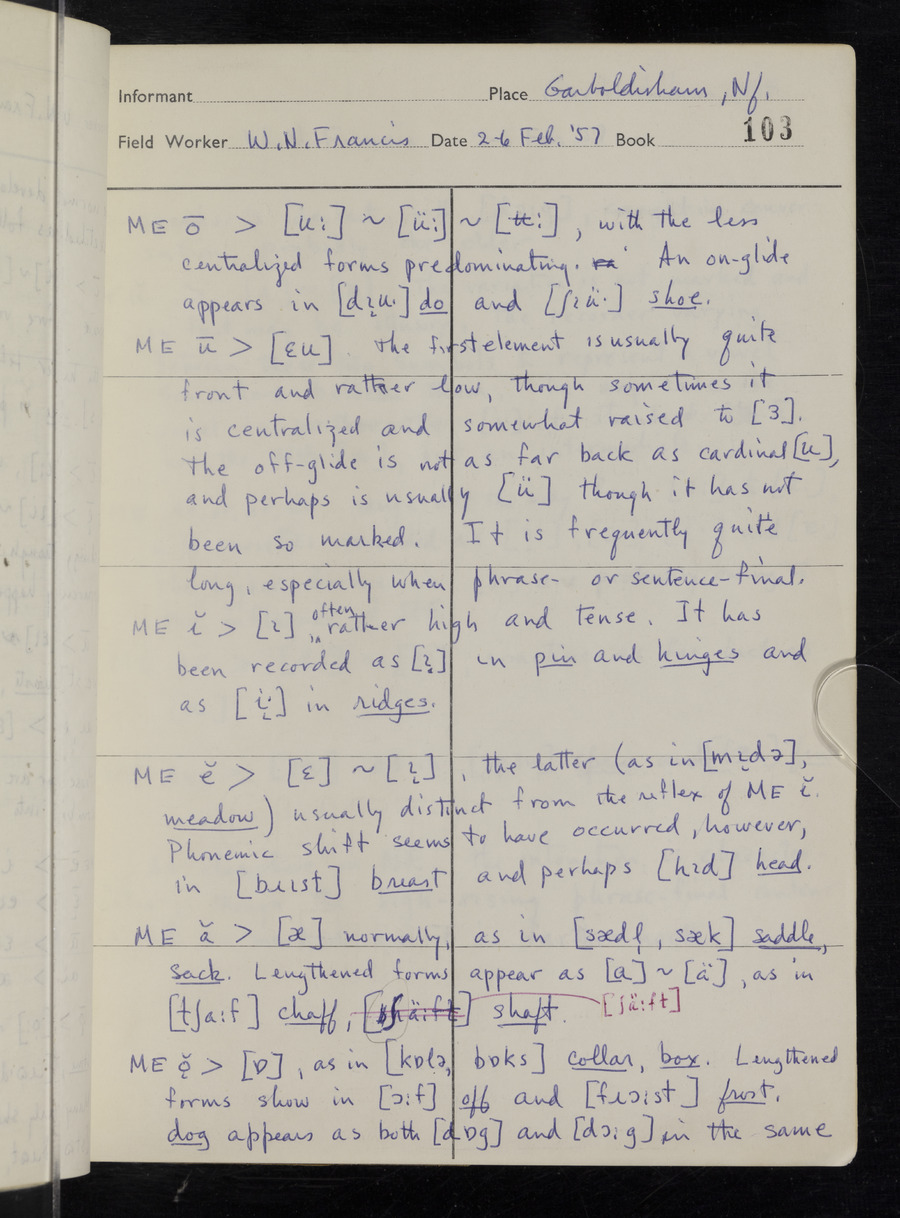 Informant Place Garboldisham, Nf.
Field Worker W.N. Francis Date 2-6 Feb. '57 Book 103
ME ō > [u:] ~ [ü:] ~ [ʉ:], with the less
centralized forms predominating. An on-glide
appears in [dɪ̨u·] do and [ʃɪü·] shoe.
ME ū > [ɛu]. The first element is usually quite
front and rather low, though sometimes it
is centralized and somewhat raised to [3].
The off-glide is not as far back as cardinal [u],
and perhaps is usually [ü] though it has not
been so marked. It is frequently quite
long, especially when phrase- or sentence-final.
ME ĭ > [ɪ] often rather high and tense. It has
been recorded as [ɪ̨] in pin and hinges and
as [į·] in ridges.
ME ĕ > [ɛ] ~ [ɪ̨], the latter (as in [mɪ̨də],
meadow) usually distinct from the reflex of ME ĭ.
Phonemic shift seems to have occurred, however,
in [bɹɪst] breast and perhaps [hɪd] head.
ME ă > [æ] normally, as in [sædl̩, sæk] saddle,
sack. Lengthened forms appear as [a] ~ [ä], as in
[tʃa:f] chaff, [ʃä:ft] shaft. [ʃä:ft]
ME ǫ̆ > [ɒ], as in [kɒlə, bɒks] collar, box. Lengthened
forms show in [ɔ:f] off and [fɹɔ:st] frost.
dog appears as both [dɒg] and [dɔ:g] in the same